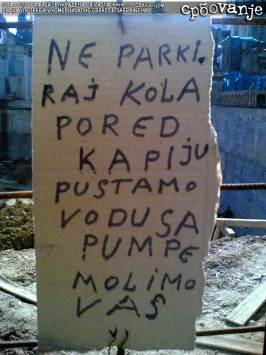 србовање
NE PARKI.
RAJ KOLA
PORED
KAPIJU
PUSTAMO
VODU SA
PUMPE
MOLIMO
VAS